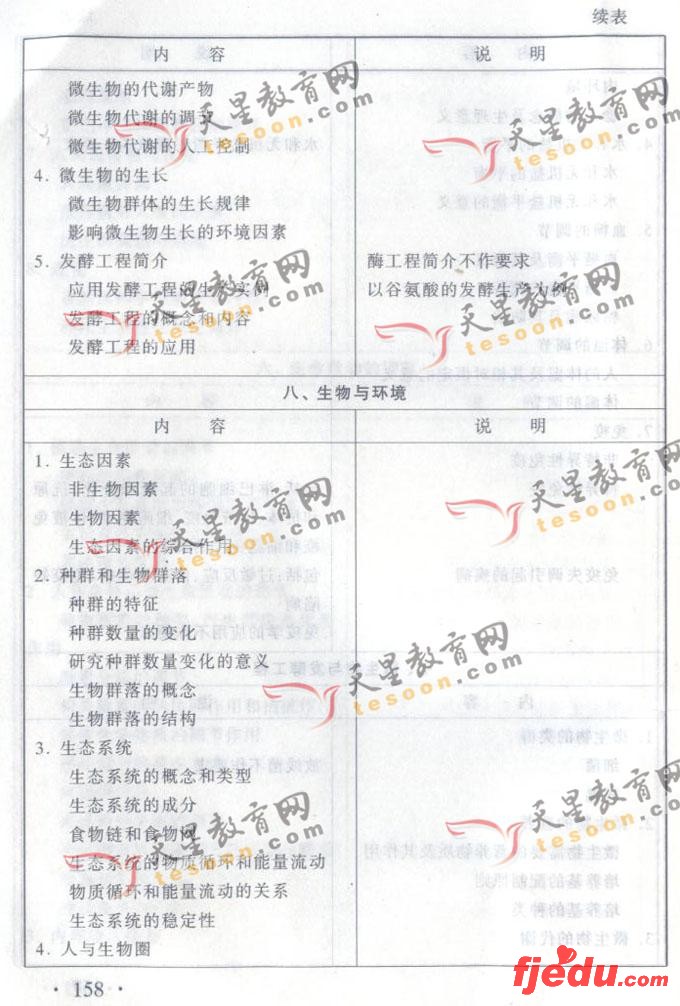 续表
内 容 说 明
微生物的代谢产物
微生物代谢的调节
微生物代谢的人工控制
4. 微生物的生长
微生物群体的生长规律
影响微生物生长的环境因素
5. 发酵工程简介 酶工程简介不作要求
应用发酵工程的生产实例 以谷氨酸的发酵生产为例
发酵工程的概念和内容
发酵工程的应用
八、生物与环境
内 容 说 明
1. 生态因素
非生物因素
生物因素
生态因素的综合作用
2. 种群和生物群落
种群的特征
种群数量的变化
研究种群数量变化的意义
生物群落的概念
生物群落的结构
3. 生态系统
生态系统的概念和类型
生态系统的成分
食物链和食物网
生态系统的物质循环和能量流动
物质循环和能量流动的关系
生态系统的稳定性
4. 人与生物圈
· 158 ·
天星教育网
tesoon.com
天星教育网
tesoon.com
天星教育网
tesoon.com
天星教育网
tesoon.com
天星教育网
tesoon.com
天星教育网
tesoon.com
天星教育网
tesoon.com
天星教育网
tesoon.com
天星教育网
tesoon.com
fjedu.com